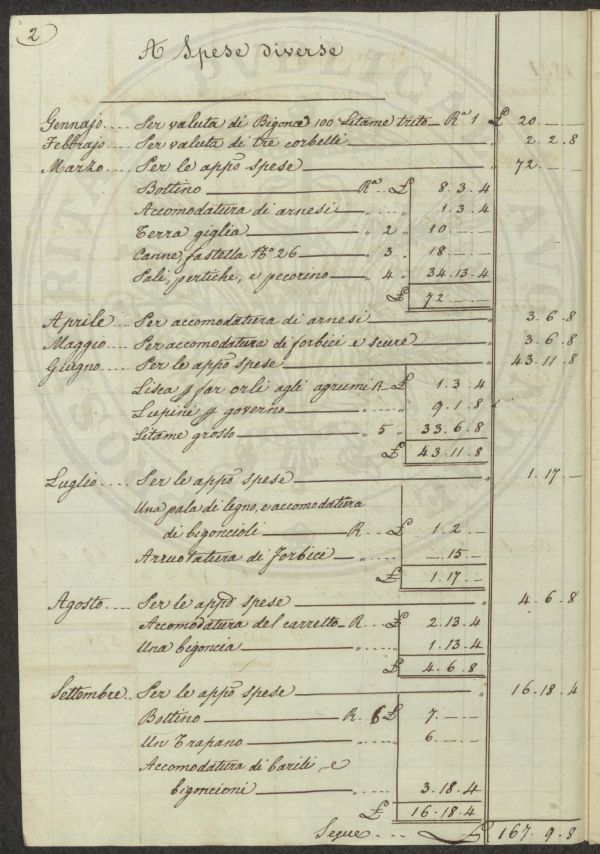 2
A Spese diverse
Gennajo.... Per valuta di Bigonce 100 Litame trito - Rª 1 £ 20 . — . —
Febbrajo.... Per valuta di tre corbelli " 2 . 2 . 8
Marzo.... Per le appº spese " 72 . — . —
Bottino Rª... £ 8 . 3 . 4
Accomodatura di arnesi " .... " 1 . 3 . 4
Terra giglia " 2 " 10 . — . —
Canne, fastella Nº 26 " 3 . 18 . — . —
Pali, pertiche, e pecorino " 4 " 34 . 13 . 4
£ 72 . — . —
Aprile.. Per accomodatura di arnesi " 3 . 6 . 8
Maggio.. Per accomodatura di forbici e scure " 3 . 6 . 8
Giugno.. Per le appº spese " 43 . 11 . 8
Lisca p far orli agli agrumi R £ 1 . 3 . 4
Lupini p governo " .... " 9 . 1 . 8
Litame grosso " 5 " 33 . 6 . 8
£ 43 . 11 . 8
Luglio.... Per le appº spese " 1 . 17 . —
Una pala di legno, e accomodatura
di bigoncioli R... £ 1 . 2 . —
Arruotatura di Forbici " .... — . 15 . —
£ 1 . 17 . —
Agosto.... Per le appº spese " 4 . 6 . 8
Accomodatura del carretto R... £ 2 . 13 . 4
Una bigoncia " .... " 1 . 13 . 4
£ 4 . 6 . 8
Settembre.. Per le appº spese " 16 . 18 . 4
Bottino R. 6 £ 7 . — . —
Un Trapano " .... " 6 . — . —
Accomodatura di barili, e
bigoncioni " .... 3 . 18 . 4
£ 16 . 18 . 4
Segue.... £ 167 . 9 . 8